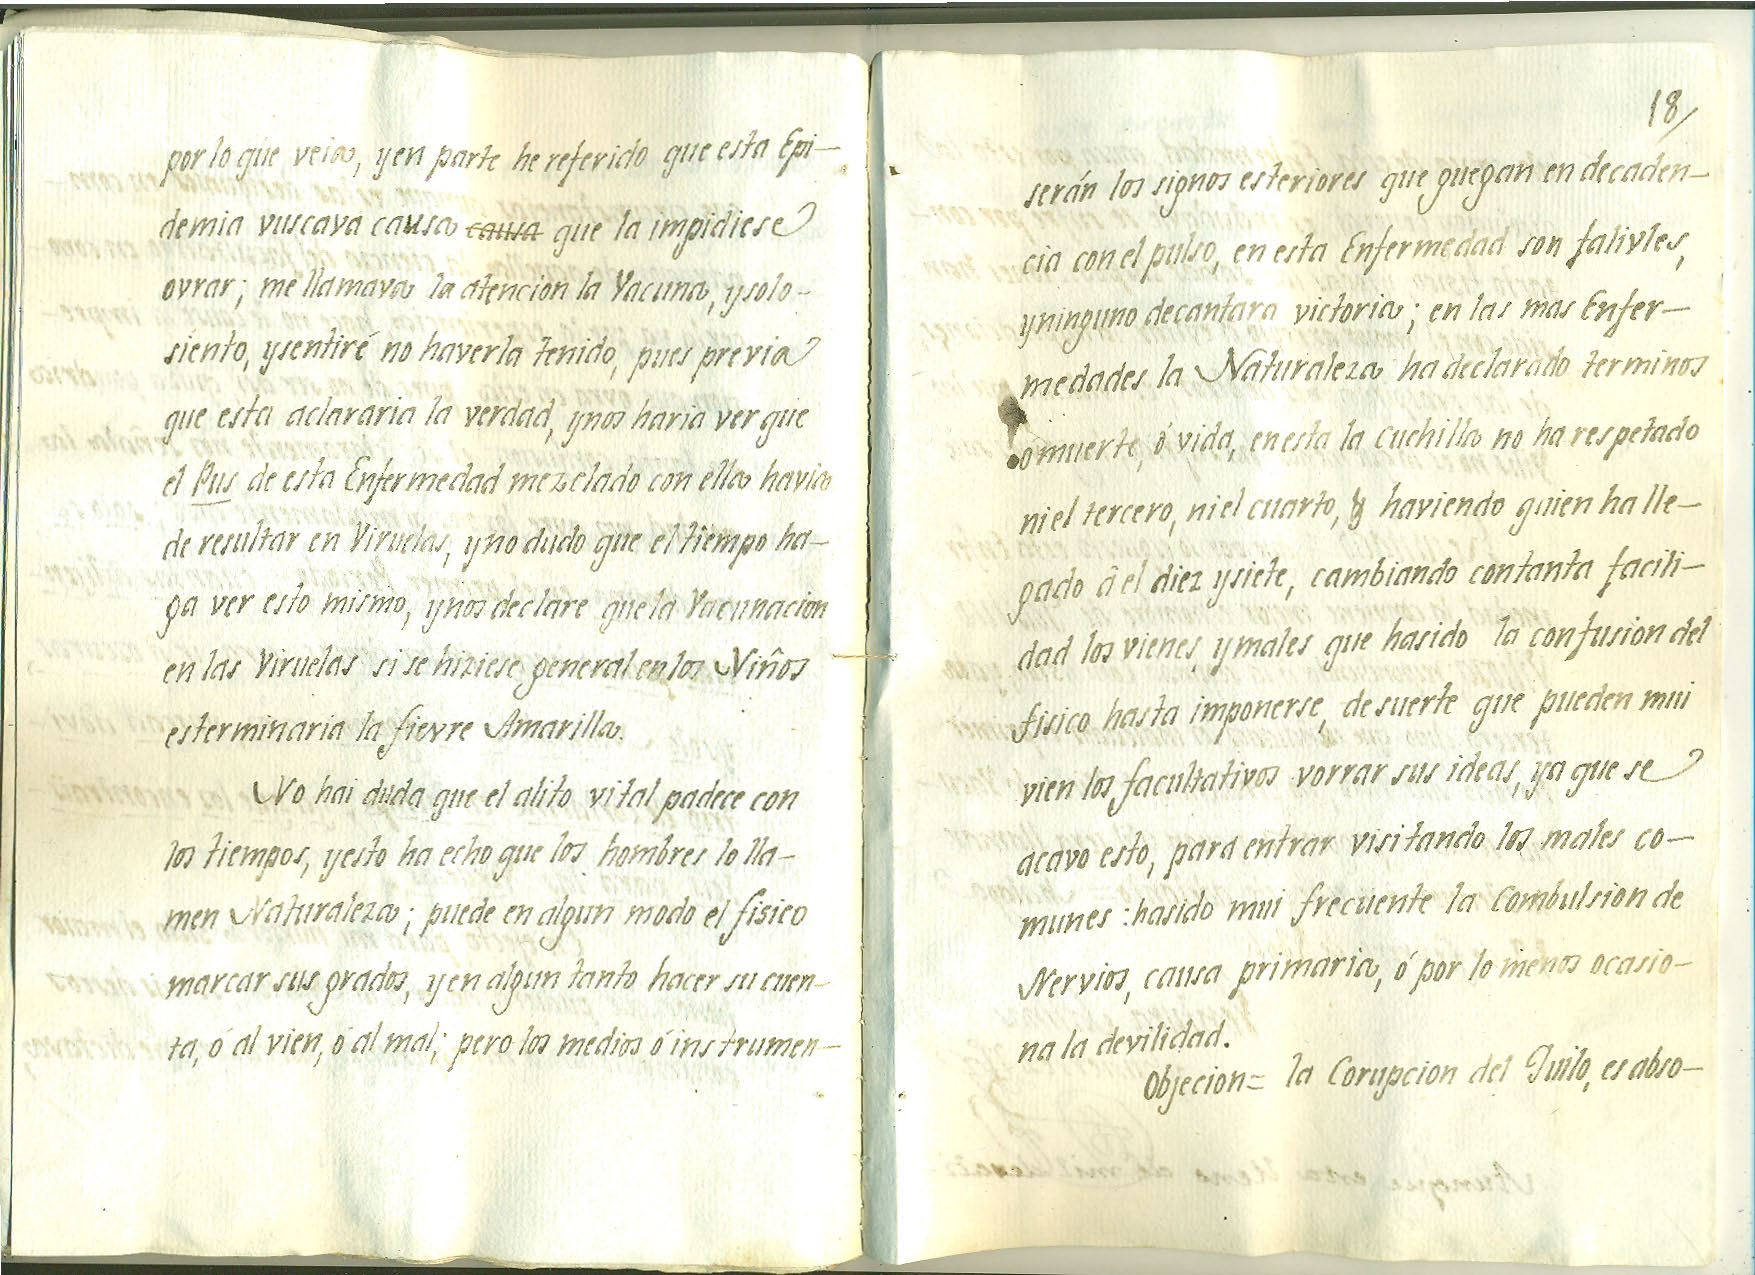 por lo que veia, y en parte he referido que esta Epi-
demia vuscava causa causa que la impidiese
ovrar; me llamava la atencion la Vacuna, y solo-
siento, y sentiré no haverla tenido, pues previa
que esta aclararia la verdad, y nos haria ver que
el Pus de esta Enfermedad mezclado con ella havia
de resultar en Viruelas, y no dudo que el tiempo ha-
ga ver esto mismo, y nos declare que la Vacunacion
en las Viruelas si se hiziese general en los Niños
esterminaria la fievre Amarilla.
No hai duda que el alito vital padece con
los tiempos, y esto ha echo que los hombres lo lla-
men Naturaleza; puede en algun modo el fisico
marcar sus grados, y en algun tanto hacer su cuen-
ta, ó al vien, ó al mal; pero los medios ó instrumen-
18/
serán los signos esteriores que guegan en decaden-
cia con el pulso, en esta Enfermedad son falivles,
y ninguno decantara victoria; en las mas Enfer-
medades la Naturaleza ha declarado terminos
ó muerte, ó vida, en esta la Cuchilla no ha respetado
ni el tercero, ni el cuarto, y haviendo quien ha lle-
gado â el diez y siete, cambiando con tanta facili-
dad los vienes y males que ha sido la confusion del
fisico hasta imponerse, de suerte que pueden mui
vien los facultativos vorrar sus ideas, ya que se
acavo esto, para entrar visitando los males co-
munes: ha sido mui frecuente la Combulsion de
Nervios, causa primaria, ó por lo menos ocasio-
na la devilidad.
Objecion= la Corupcion del Quilo, es abso-